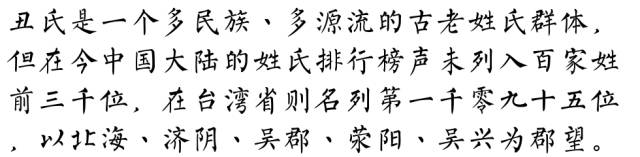 丑氏是一个多民族、多源流的古老姓氏群体,
但在今中国大陆的姓氏排行榜声未列入百家姓
前三千位, 在台湾省则名列第一千零九十五位
, 以北海、济阴、吴郡、荥阳、吴兴为郡望。